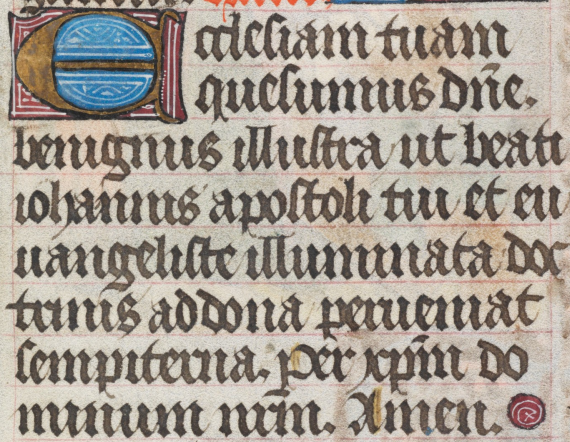 Ecclesiam tuam
quesumus dñe.
benignus illustra ut beati
iohannis apostoli tui et eu
uangeliste illuminata doc
trinis ad dona perueniat
sempiterna. per xp̄m do
minum nr̄m. Amen.